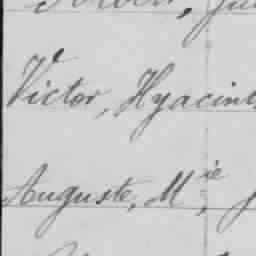 Victor, Hyacint
Auguste, M^ie